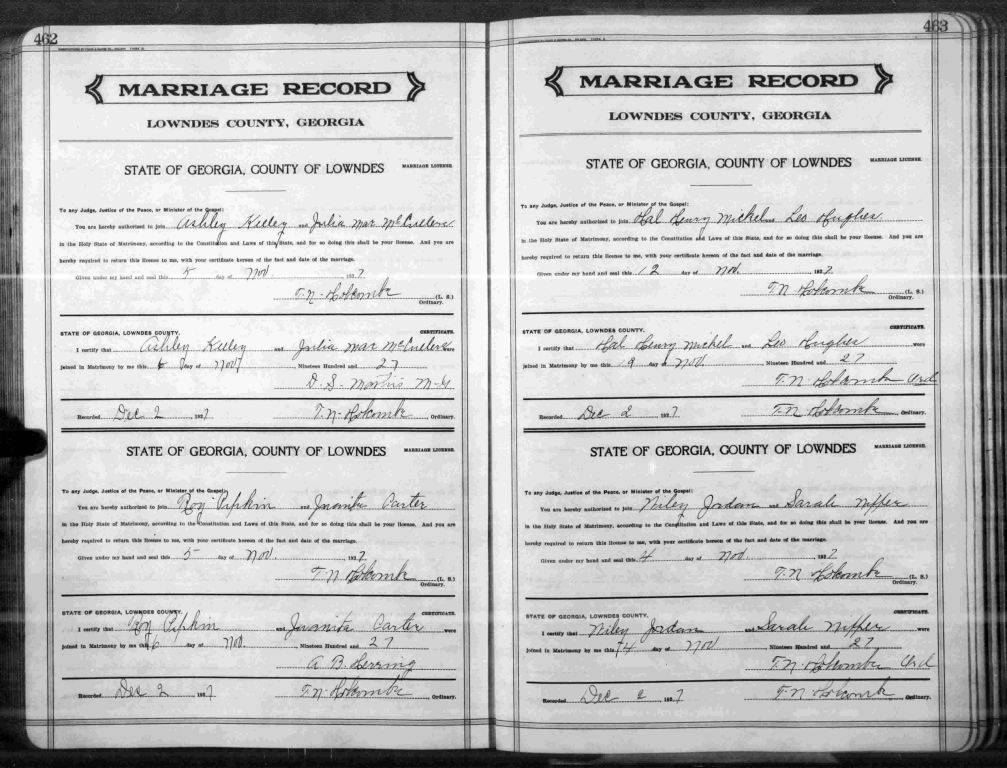 462
MARRIAGE RECORD
LOWNDES COUNTY, GEORGIA
STATE OF GEORGIA, COUNTY OF LOWNDES MARRIAGE LICENSE.
To any Judge, Justice of the Peace, or Minister of the Gospel:
You are hereby authorized to join Ashley Kelley and Julia Mae McCullers
in the Holy State of Matrimony, according to the Constitution and Laws of this State, and for so doing this shall be your license. And you are
hereby required to return this license to me, with your certificate hereon of the fact and date of the marriage.
Given under my hand and seal this 5 day of Nov 1927
T. N. Holcomb (L. S.)
Ordinary.
STATE OF GEORGIA, LOWNDES COUNTY. CERTIFICATE.
I certify that Ashley Kelley and Julia Mae McCullers were
joined in Matrimony by me this 6 day of Nov, Nineteen Hundred and 27
D. S. M. G.
Recorded Dec 2 1927 T. N. Holcomb Ordinary.
STATE OF GEORGIA, COUNTY OF LOWNDES MARRIAGE LICENSE.
To any Judge, Justice of the Peace, or Minister of the Gospel:
You are hereby authorized to join Roy Pipkin and Juanita Carter
in the Holy State of Matrimony, according to the Constitution and Laws of this State, and for so doing this shall be your license. And you are
hereby required to return this license to me, with your certificate hereon of the fact and date of the marriage.
Given under my hand and seal this 5 day of Nov. 1927
T. N. Holcomb (L. S.)
Ordinary.
STATE OF GEORGIA, LOWNDES COUNTY. CERTIFICATE.
I certify that Roy Pipkin and Juanita Carter were
joined in Matrimony by me this 6 day of Nov., Nineteen Hundred and 27
A. B. Herring
Recorded Dec 2 1927 T. N. Holcomb Ordinary.
463
MARRIAGE RECORD
LOWNDES COUNTY, GEORGIA
STATE OF GEORGIA, COUNTY OF LOWNDES MARRIAGE LICENSE.
To any Judge, Justice of the Peace, or Minister of the Gospel:
You are hereby authorized to join Hal Henry Mickel and Leo Hughes
in the Holy State of Matrimony, according to the Constitution and Laws of this State, and for so doing this shall be your license. And you are
hereby required to return this license to me, with your certificate hereon of the fact and date of the marriage.
Given under my hand and seal this 12 day of Nov. 1927
T. N. Holcomb (L. S.)
Ordinary.
STATE OF GEORGIA, LOWNDES COUNTY. CERTIFICATE.
I certify that Hal Henry Mickel and Leo Hughes were
joined in Matrimony by me this 19 day of Nov. Nineteen Hundred and 27
T. N. Holcomb Ord
Recorded Dec 2 1927 T. N. Holcomb Ordinary.
STATE OF GEORGIA, COUNTY OF LOWNDES MARRIAGE LICENSE.
To any Judge, Justice of the Peace, or Minister of the Gospel:
You are hereby authorized to join Niley Jordan and Sarah Nipper
in the Holy State of Matrimony, according to the Constitution and Laws of this State, and for so doing this shall be your license. And you are
hereby required to return this license to me, with your certificate hereon of the fact and date of the marriage.
Given under my hand and seal this 4 day of Nov. 1927
T. N. Holcomb (L. S.)
Ordinary.
STATE OF GEORGIA, LOWNDES COUNTY. CERTIFICATE.
I certify that Niley Jordan and Sarah Nipper were
joined in Matrimony by me this 4 day of Nov Nineteen Hundred and 27
T. N. Holcomb Ord
Recorded Dec 2, 1927 T. N. Holcomb Ordinary.